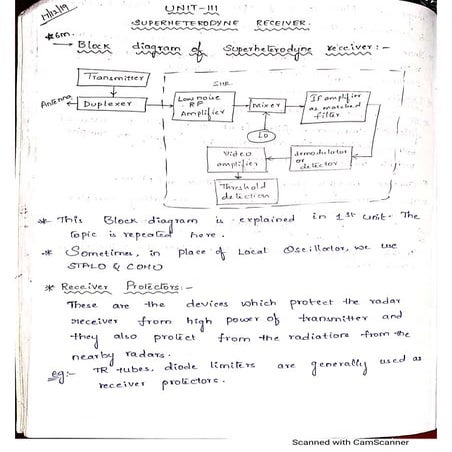 17/12/19
UNIT-III
SUPERHETERODYNE RECEIVER.
*6m.
→ Block diagram of Superheterodyne receiver:-
Transmitter
SHR
Antenna
Duplexer
Low noise
RF
Amplifier
Mixer
If amplifier
as matched
filter
Lo
Video
amplifier
demodulator
or
detector
Threshold
detection
* This Block diagram is explained in 1st unit. The
topic is repeated here.
* Sometimes, in place of Local Oscillator, we use
STALO & COHO
* Receiver Protectors:-
These are the devices which protect the radar
receiver from high power of transmitter and
they also protect from the radiations from the
nearby radars.
eg:- TR tubes, diode limiters are generally used as
receiver protectors.
Scanned with CamScanner